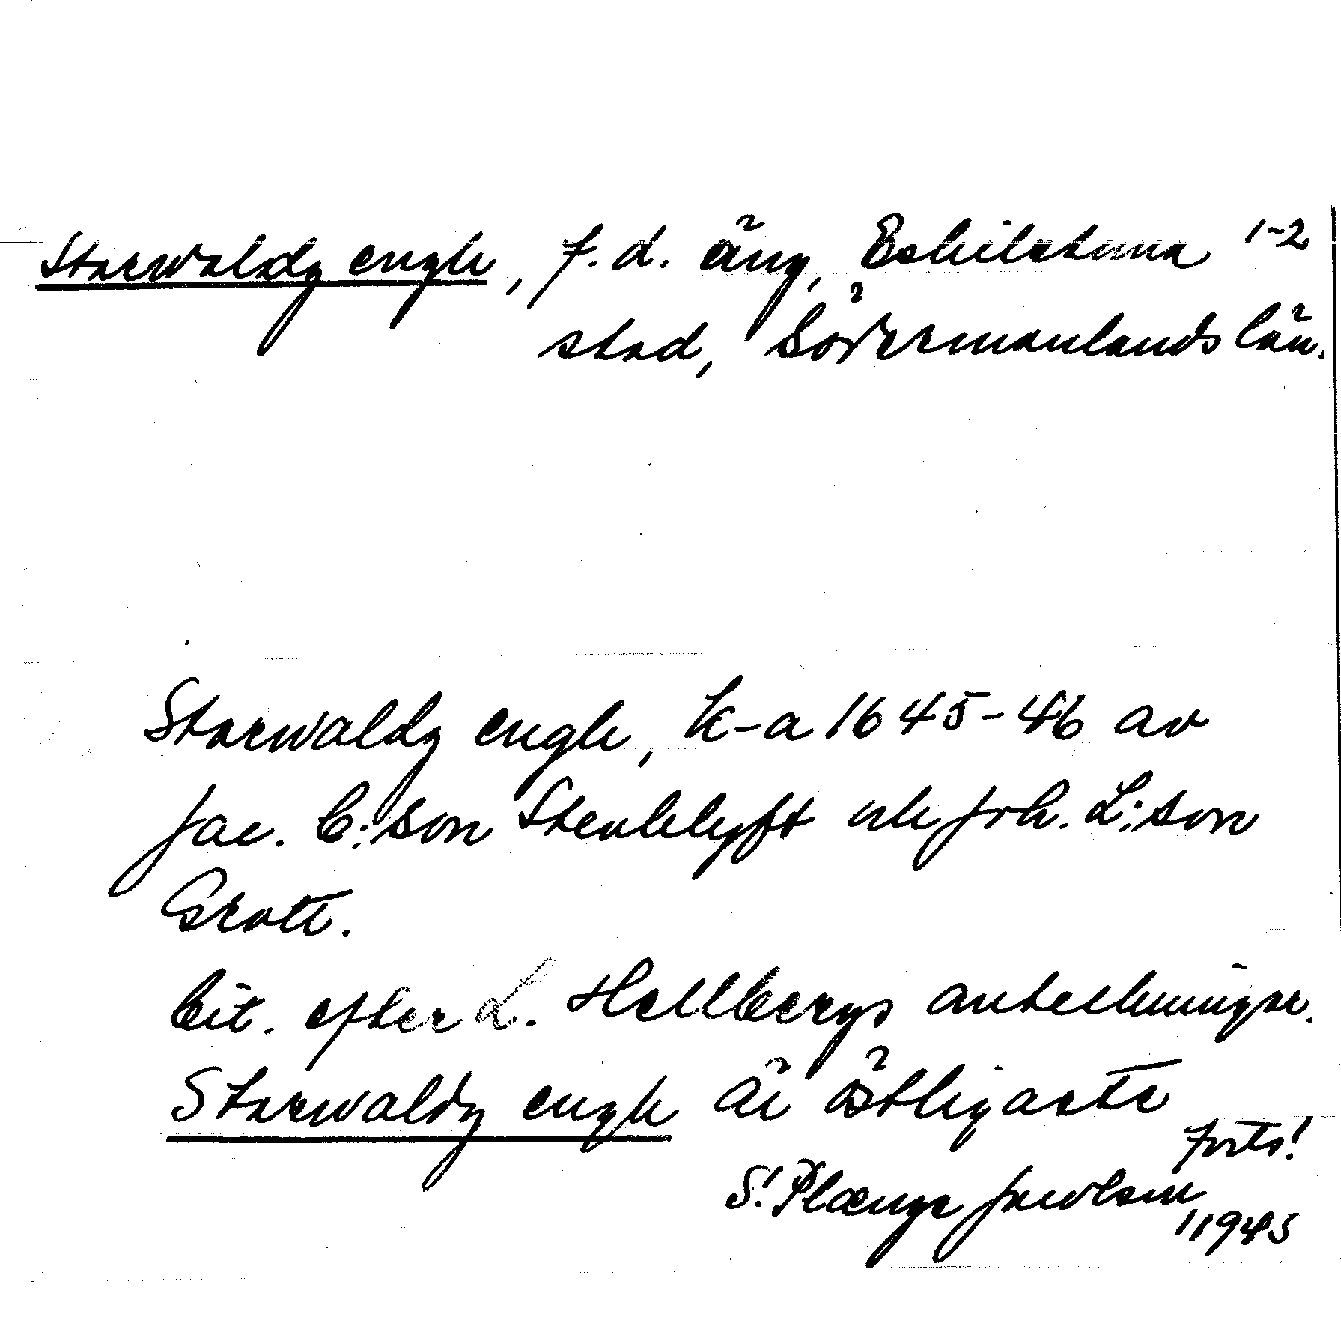 Starwaldz engh, f.d. äng, Eskilstuna 1-2
stad, Södermanlands län.
Starwaldz engh, k-a 1645-46 av
Jac. C:son Stenklyft och Joh. L:son
Grott.
Cit. efter L. Hellbergs anteckningar.
Starwaldz engh är östligaste
forts!
S. Plænge Jacobson
1945